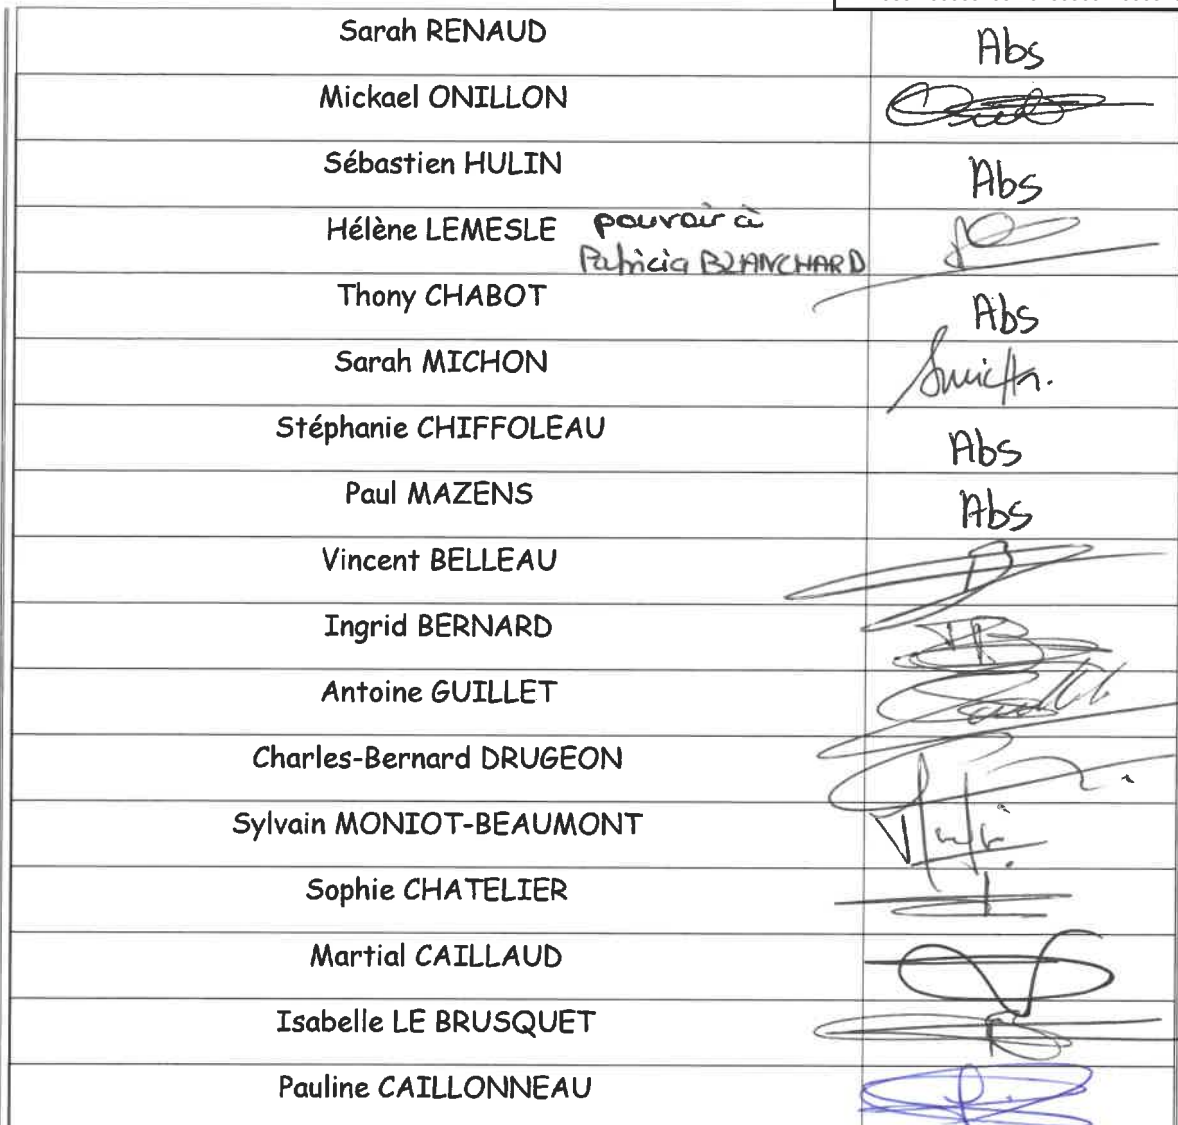 Sarah RENAUD Abs
Mickael ONILLON
Sébastien HULIN Abs
Hélène LEMESLE pouvoir à
Patricia BLANCHARD
Thony CHABOT Abs
Sarah MICHON
Stéphanie CHIFFOLEAU Abs
Paul MAZENS Abs
Vincent BELLEAU
Ingrid BERNARD
Antoine GUILLET
Charles-Bernard DRUGEON
Sylvain MONIOT-BEAUMONT
Sophie CHATELIER
Martial CAILLAUD
Isabelle LE BRUSQUET
Pauline CAILLONNEAU